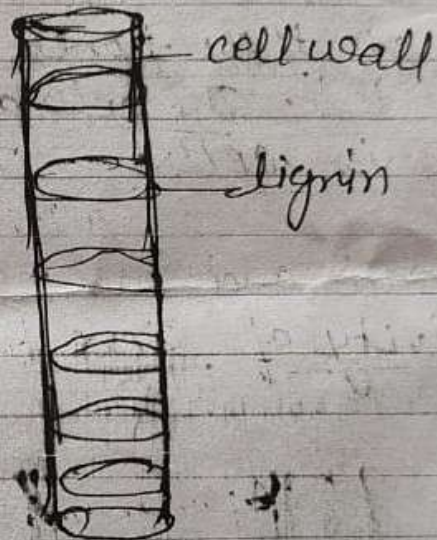 cell wall
lignin